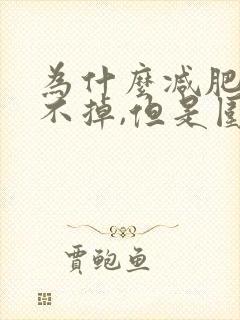 為什麼減肥
不掉,但是
賈鮑魚